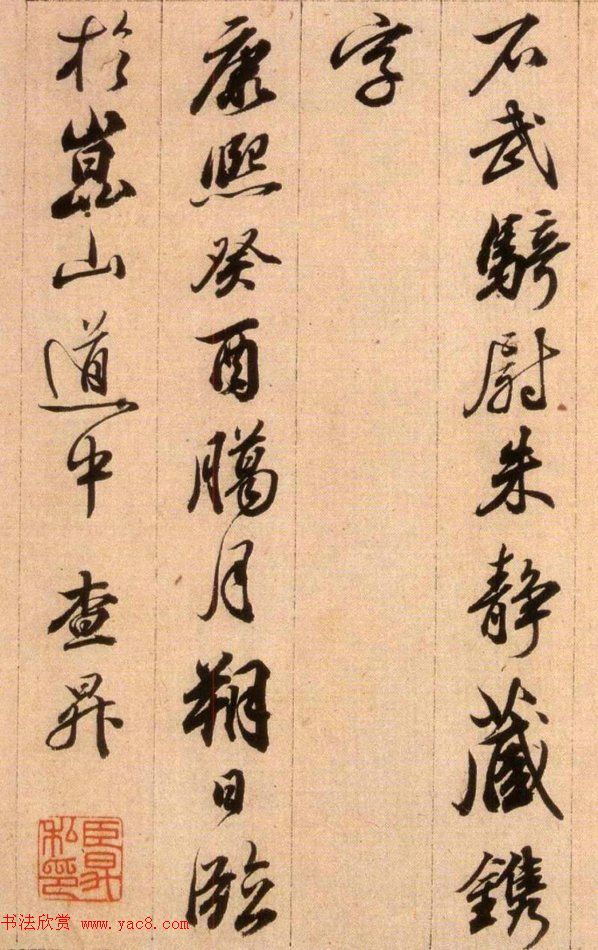 石武騎尉朱静藏鐫
字
康熙癸酉臈月朔日臨
於崑山道中 查昇
臣昇私印
书法欣赏 www.yac8.com